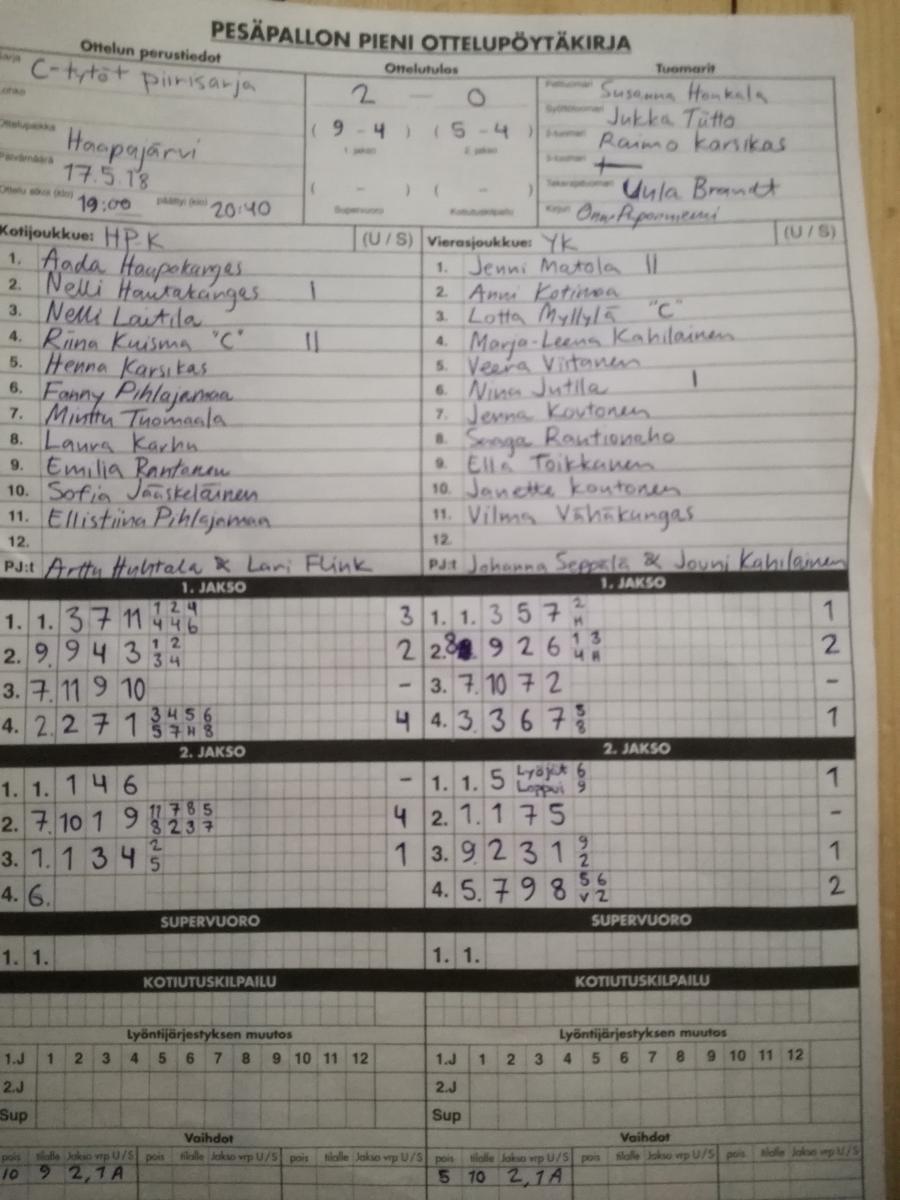 PESÄPALLON PIENI OTTELUPÖYTÄKIRJA
Ottelun perustiedot
Ottelutulos
Tuomarit
C-tytöt piirisarja
Lohko
Ottelupaikka Haapajärvi
Päivämäärä 17.5.18
Ottelu alkoi (klo) 19:00 päättyi (klo) 20:40
2 — 0
( 9 - 4 ) ( 5 - 4 )
1. jakso 2. jakso
( - ) ( - )
Supervuoro Kotiutuskilpailu
Pelituomari Susanna Honkala
Syöttötuomari Jukka Tütto
2-tuomari Raimo Karsikas
3-tuomari
Takarajatuomari Uula Brandt
Kirjuri
Kotijoukkue: HPK (U / S)
1. Aada Haapakangas
2. Nelli Hautakangas I
3. Nelli Laitila
4. Riina Kuisma "C" II
5. Henna Karsikas
6. Fanny Pihlajamaa
7. Minttu Tuomaala
8. Laura Karhu
9. Emilia Rantanen
10. Sofia Jääskeläinen
11. Ellistiina Pihlajamaa
12.
PJ:t Arttu Huhtala & Lari Flink
Vierasjoukkue: YK (U / S)
1. Jenni Matola II
2. Anni Kotimaa
3. Lotta Myllylä "C"
4. Marja-Leena Kahilainen
5. Veera Viitanen
6. Nina Jutila I
7. Jenna Koutonen
8. Saaga Rautioaho
9. Ella Toikkanen
10. Janette Koutonen
11. Vilma Vähäkungas
12.
PJ:t Johanna Seppälä & Jouni Kahilainen
1. JAKSO
1. 1. 3 7 11 1 2 4 3
4 4 6
2. 9. 9 4 3 1 2 2
3 4
3. 7. 11 9 10 -
4. 2. 2 7 1 3 4 5 6 4
5 7 H 8
1. JAKSO
1. 1. 3 5 7 2 1
H
2. 8. 9 2 6 1 3 2
4 H
3. 7. 10 7 2 -
4. 3. 3 6 7 5 1
8
2. JAKSO
1. 1. 1 4 6 -
2. 7. 10 1 9 11 7 8 5 4
8 2 3 7
3. 1. 1 3 4 2 1
5
4. 6.
2. JAKSO
1. 1. 5 Lyöjät 6 1
Loppui 9
2. 1. 1 7 5 -
3. 9. 2 3 1 9 1
2
4. 5. 7 9 8 5 6 2
V 2
SUPERVUORO
1. 1.
SUPERVUORO
1. 1.
KOTIUTUSKILPAILU
KOTIUTUSKILPAILU
Lyöntijärjestyksen muutos
1.J 1 2 3 4 5 6 7 8 9 10 11 12
2.J
Sup
Lyöntijärjestyksen muutos
1.J 1 2 3 4 5 6 7 8 9 10 11 12
2.J
Sup
Vaihdot
pois tilalle Jakso vrp U/S pois tilalle Jakso vrp U/S pois tilalle Jakso vrp U/S
10 9 2, 1A
Vaihdot
pois tilalle Jakso vrp U/S pois tilalle Jakso vrp U/S pois tilalle Jakso vrp U/S
5 10 2, 1A